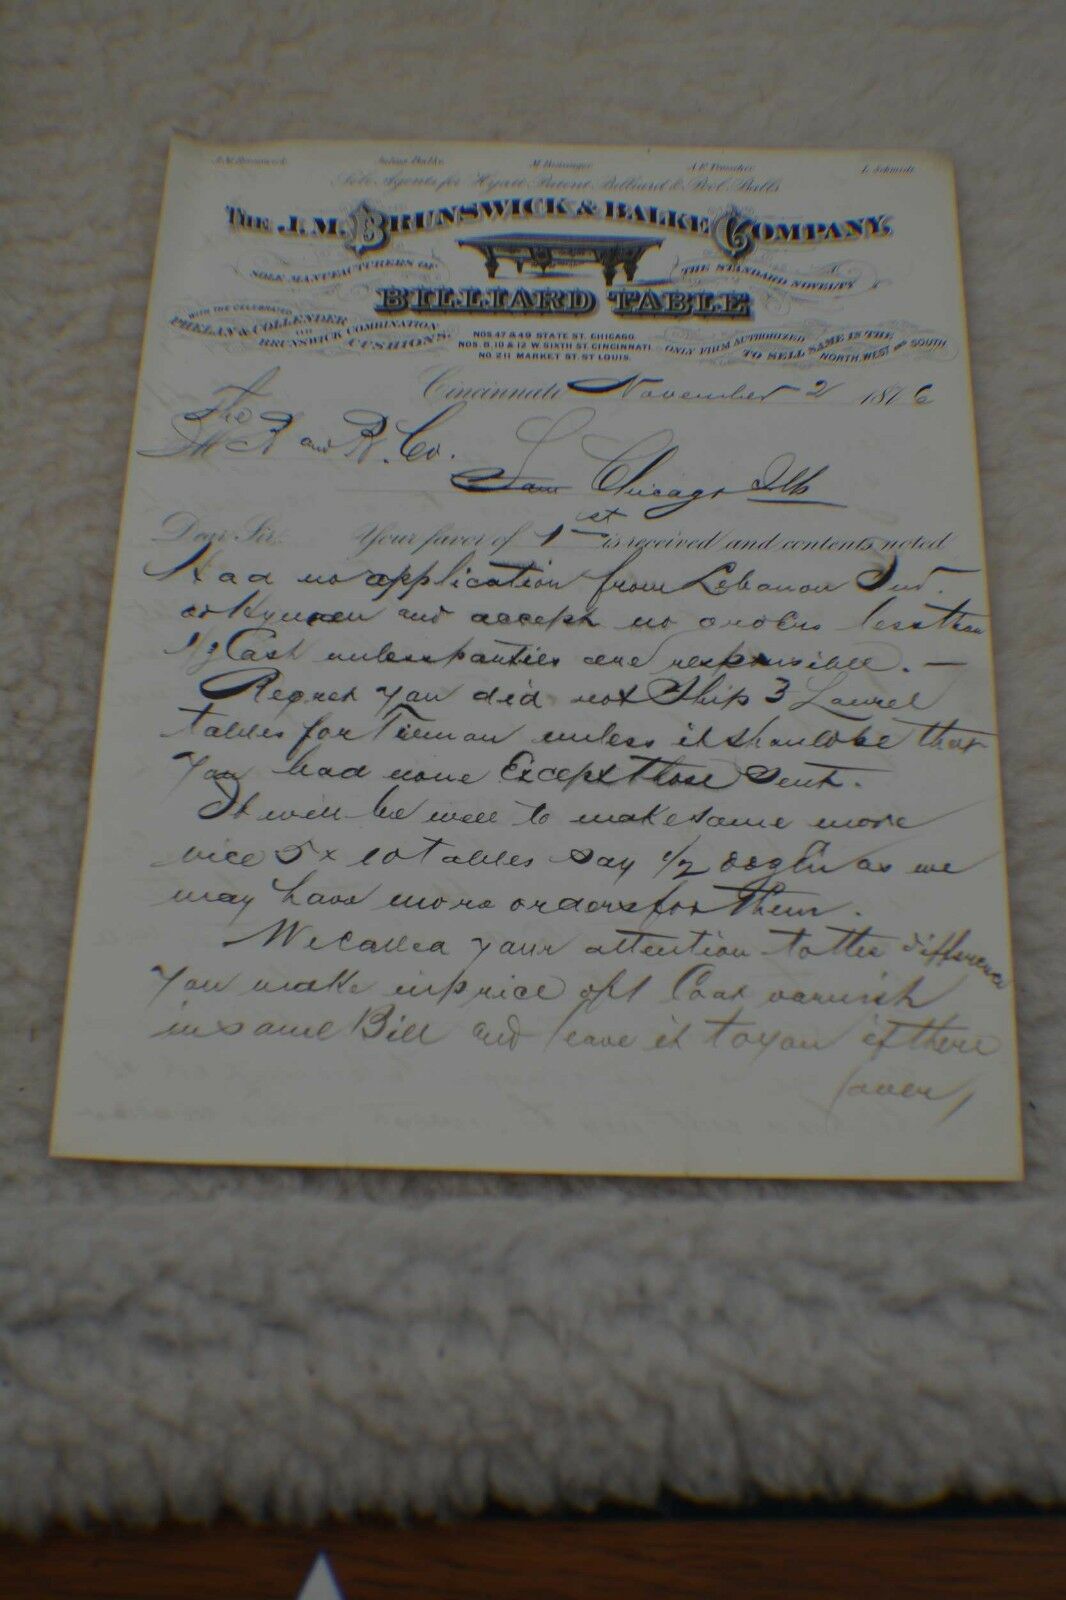 J. M. Brunswick Julius Balke M. Bensinger A. F. Troescher L. Schmidt
Sole Agents for Hyatt Patent Billiard & Pool Balls
THE J. M. BRUNSWICK & BALKE COMPANY,
SOLE MANUFACTURERS OF THE STANDARD NOVELTY
BILLIARD TABLE
WITH THE CELEBRATED
PHELAN & COLLENDER
AND
BRUNSWICK COMBINATION
CUSHIONS.
NOS. 47 & 49 STATE ST. CHICAGO.
NOS. 8, 10 & 12 W. SIXTH ST. CINCINNATI.
NO. 211 MARKET ST. ST LOUIS.
ONLY FIRM AUTHORIZED
TO SELL SAME IN THE
NORTH, WEST AND SOUTH.
Cincinnati November 2 1876
The
B and B. Co.
Chicago Ills
Dear Sir. Your favor of 1st is received and contents noted
Had no application from Lebanon Ind.
and accept no orders less than
1/2 Cash unless parties are responsible. —
Regret you did not Ship 3 Laurel
tables for unless it should be that
you had none Except those Sent.
It will be well to make some more
nice 5 x 10 tables say 1/2 dozen as we
may have more orders for them.
We called your attention to the difference
you make in price of 1 Coat varnish
in same Bill and leave it to you if there
(over)